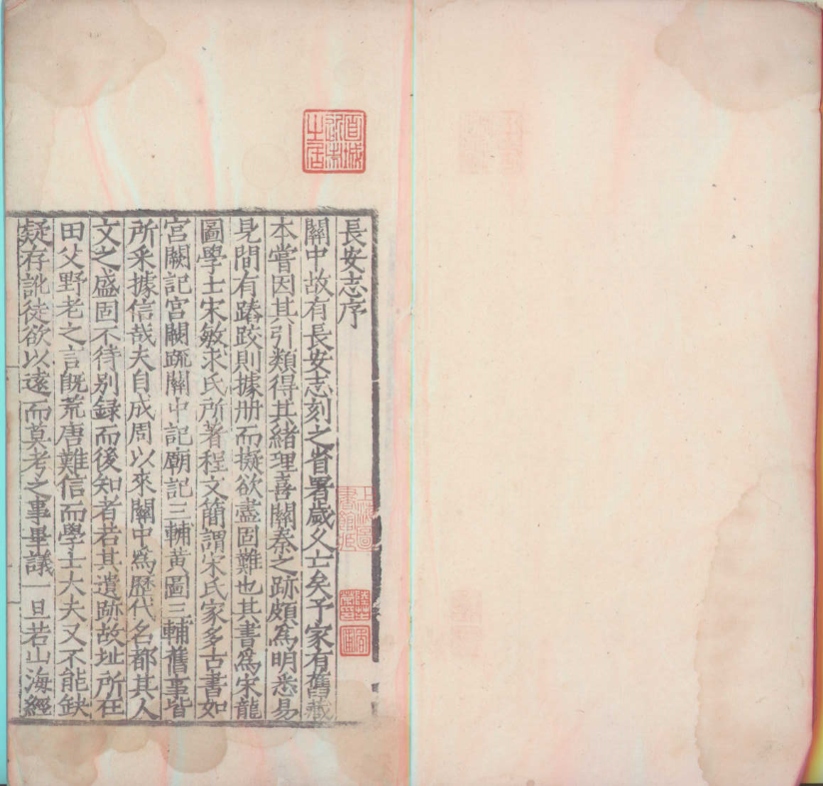 長安志序
關中故有長安志刻之省署歲久亡矣予家有舊藏
本嘗因其引類得其緒理喜關秦之跡頗爲明悉易
見間有踳跤則據册而擬欲盡固難也其書爲宋龍
圖學士宋敏求氏所著程文簡謂宋氏家多古書如
宮闕記宮闕疏關中記廟記三輔黃圖三輔舊事皆
所釆據信哉夫自成周以來關中爲歷代名都其人
文之盛固不待別録而後知者若其遺跡故址所在
田父野老之言旣荒唐難信而學士大夫又不能缺
疑存訛徒欲以遠而莫考之事畢議一旦若山海經